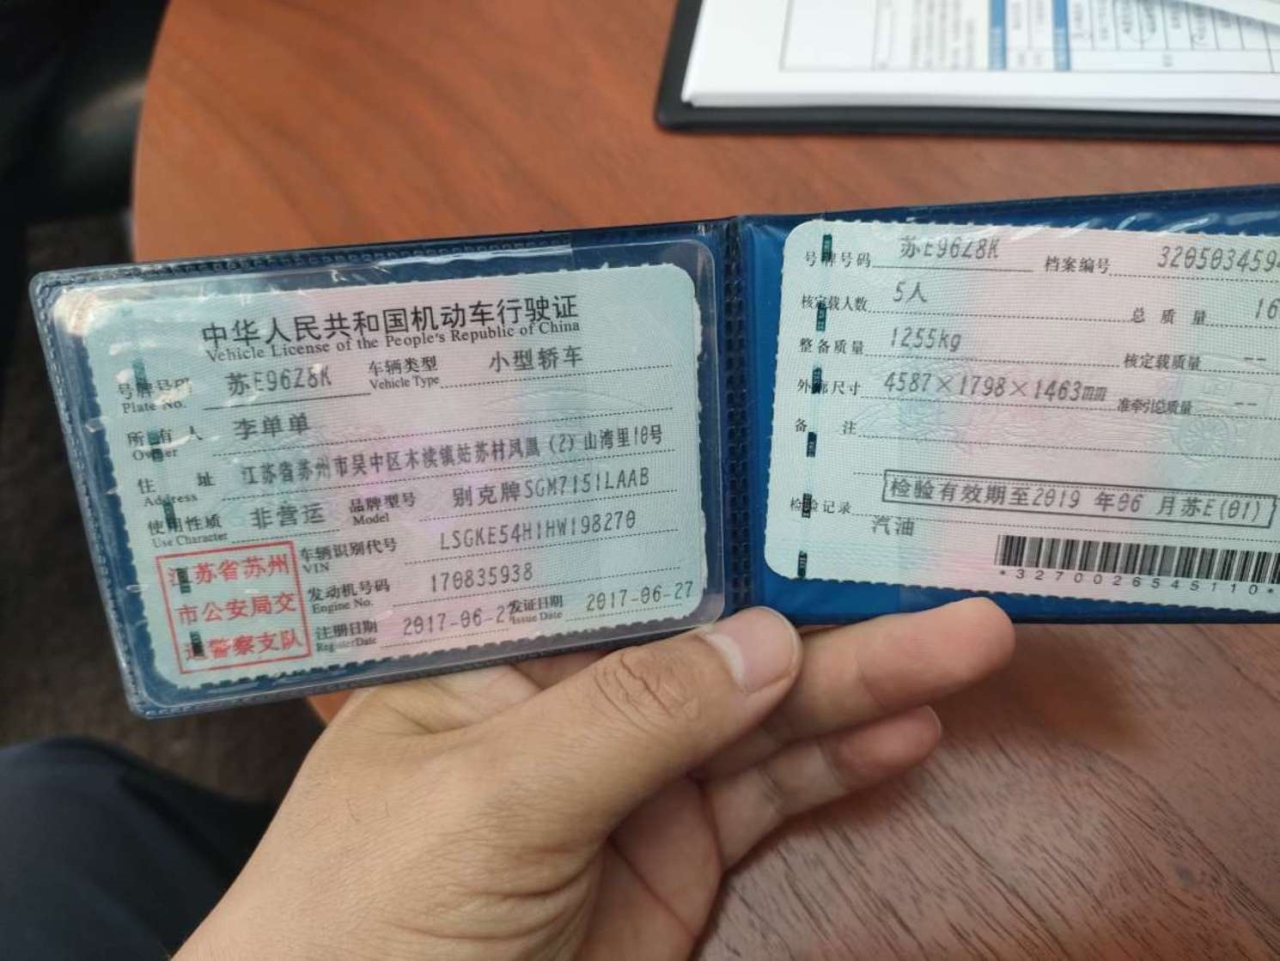 中华人民共和国机动车行驶证
Vehicle License of the People's Republic of China
号牌号码 苏E96Z8K 车辆类型 小型轿车
Plate No. Vehicle Type
所有人 李单单
Owner
住址 江苏省苏州市吴中区木渎镇姑苏村凤凰(2)山湾里10号
Address
使用性质 非营运 品牌型号 别克牌SGM7151LAAB
Use Character Model
江苏省苏州
市公安局交
通警察支队
车辆识别代号 LSGKE54H1HW198270
VIN
发动机号码 170835938
Engine No.
注册日期 2017-06-27 发证日期 2017-06-27
Register Date Issue Date
号牌号码 苏E96Z8K 档案编号 320503459
核定载人数 5人 总质量 16
整备质量 1255kg 核定载质量 --
外廓尺寸 4587×1798×1463mm 准牵引总质量 --
备注
检验有效期至2019年06月苏E(01)
检验记录
汽油
*3270026545110*